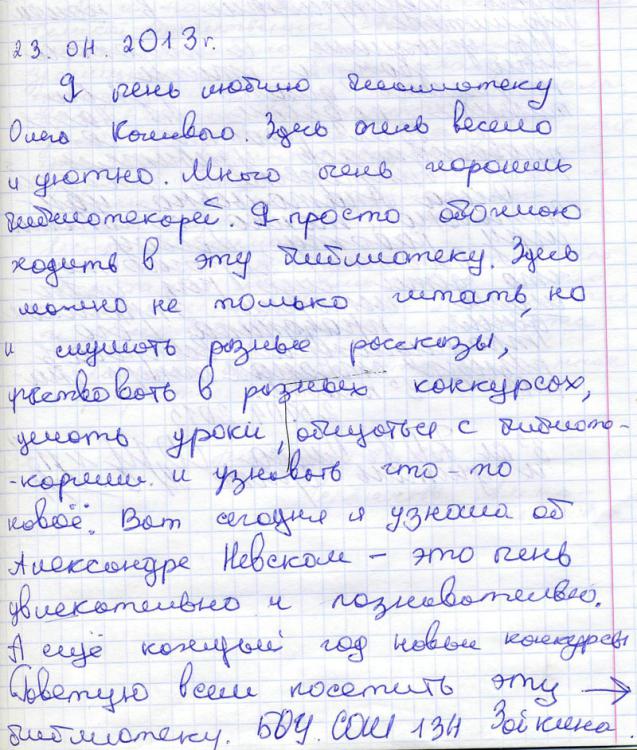 23. он. 2013 г.
Я очень люблю библиотеку
Олега Кошевого. Здесь очень весело
и уютно. Много очень хороших
библиотекарей. Я просто обожаю
ходить в эту библиотеку. Здесь
можно не только читать, но
и слушать разные рассказы,
участвовать в разных конкурсах,
делать уроки, общаться с библиоте-
-карями и узнавать что-то
новоё. Вот сегодня я узнала об
Александре Невском – это очень
увлекательно и познавательно.
А ещё каждый год новые конкурсы
Советую всем посетить эту →
библиотеку. БОУ. СОШ 134 Зайкина.